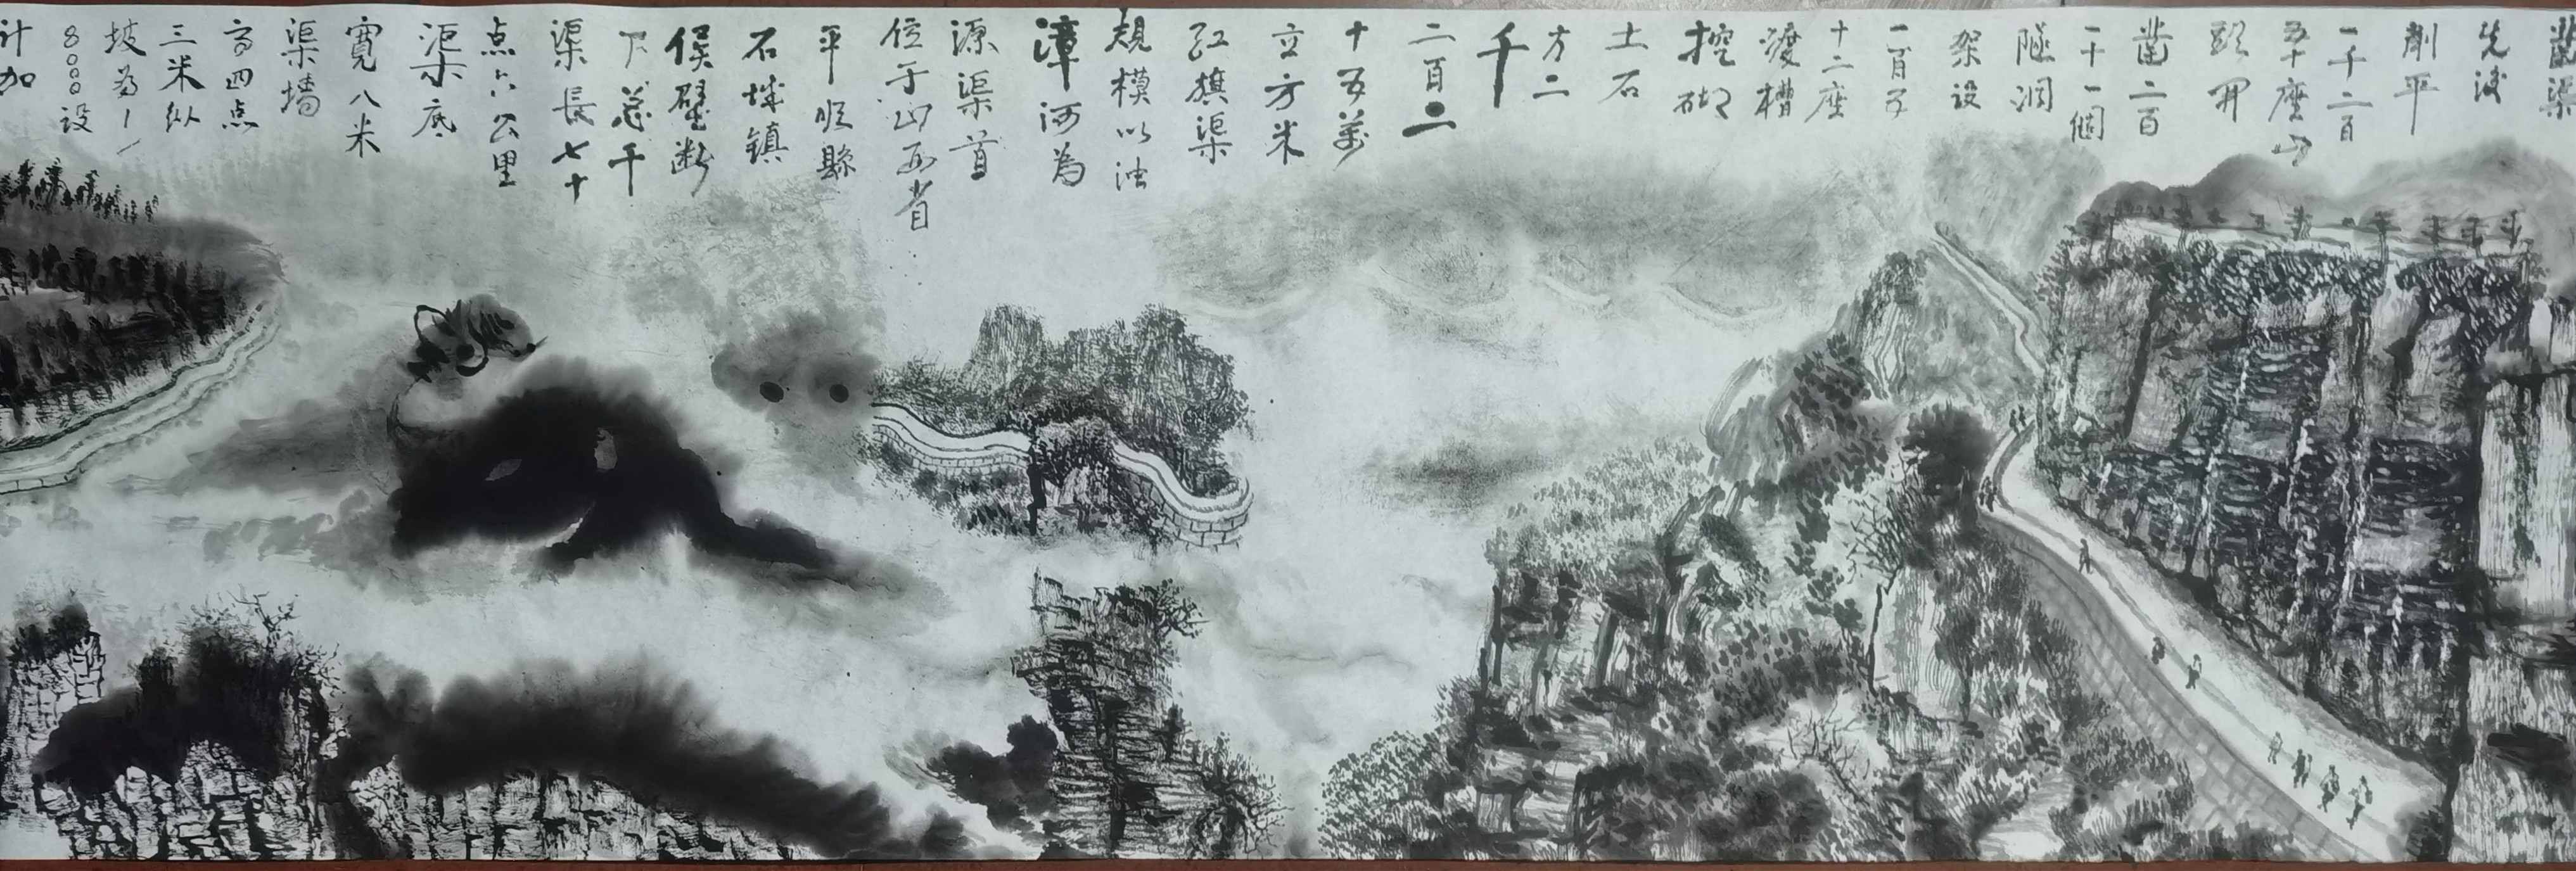 凿渠
先後
削平
一千二百
五十座山
頭开
凿二百
一十一個
隧洞
架设
一百五
十二座
渡槽
挖砌
土石
方二
千
二百二
十五萬
立方米
红旗渠
規模以浊
漳河為
源渠首
位于山西省
平順縣
石城鎮
侯壁断
下总干
渠長七十
点六公里
渠底
寬八米
渠墙
高四点
三米纵
坡為1/
8000设
计加